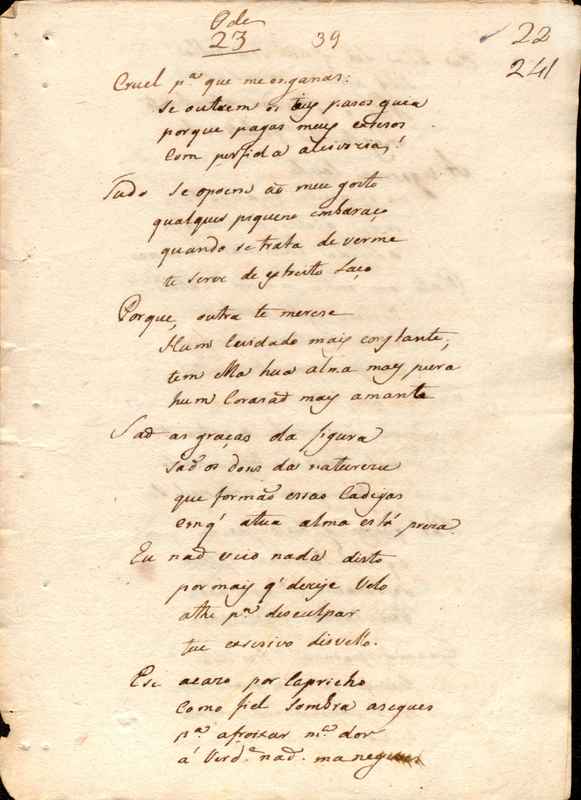 Ode
23
39
22
241
Cruel p.ª que me enganas:
se outrem os teus pasos guia
porque pagas meus excesos
com perfida aleivozia!
Tudo se opoem ao meu gosto
qualquer piqueno embaraço
quando se trata de verme
te serve de estreito Laço
Porque, outra te merese
Hum Cuidado mais constante;
tem Ella hua alma mais pura
hum Corasaõ mais amante
Saõ as graças da figura
saõ os dons da natureza
que formaõ essas Cadeyas
em q' a tua alma está preza.
Eu naõ vejo nada disto
por mais q' dezeje velo
athe p.ª desculpar
teu excesivo disvello.
E se acazo por Capricho
Como fiel sombra a segues
p.ª afroixar m.ª dor
á Verd.e naõ ma negues